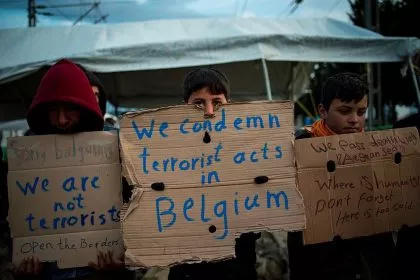 Sorry belgium
We are
not
terrorist
Open the Borders
We Condemn
terrorist acts
in
Belgium
We pass
Where is humanity
Don't forget
Here is too